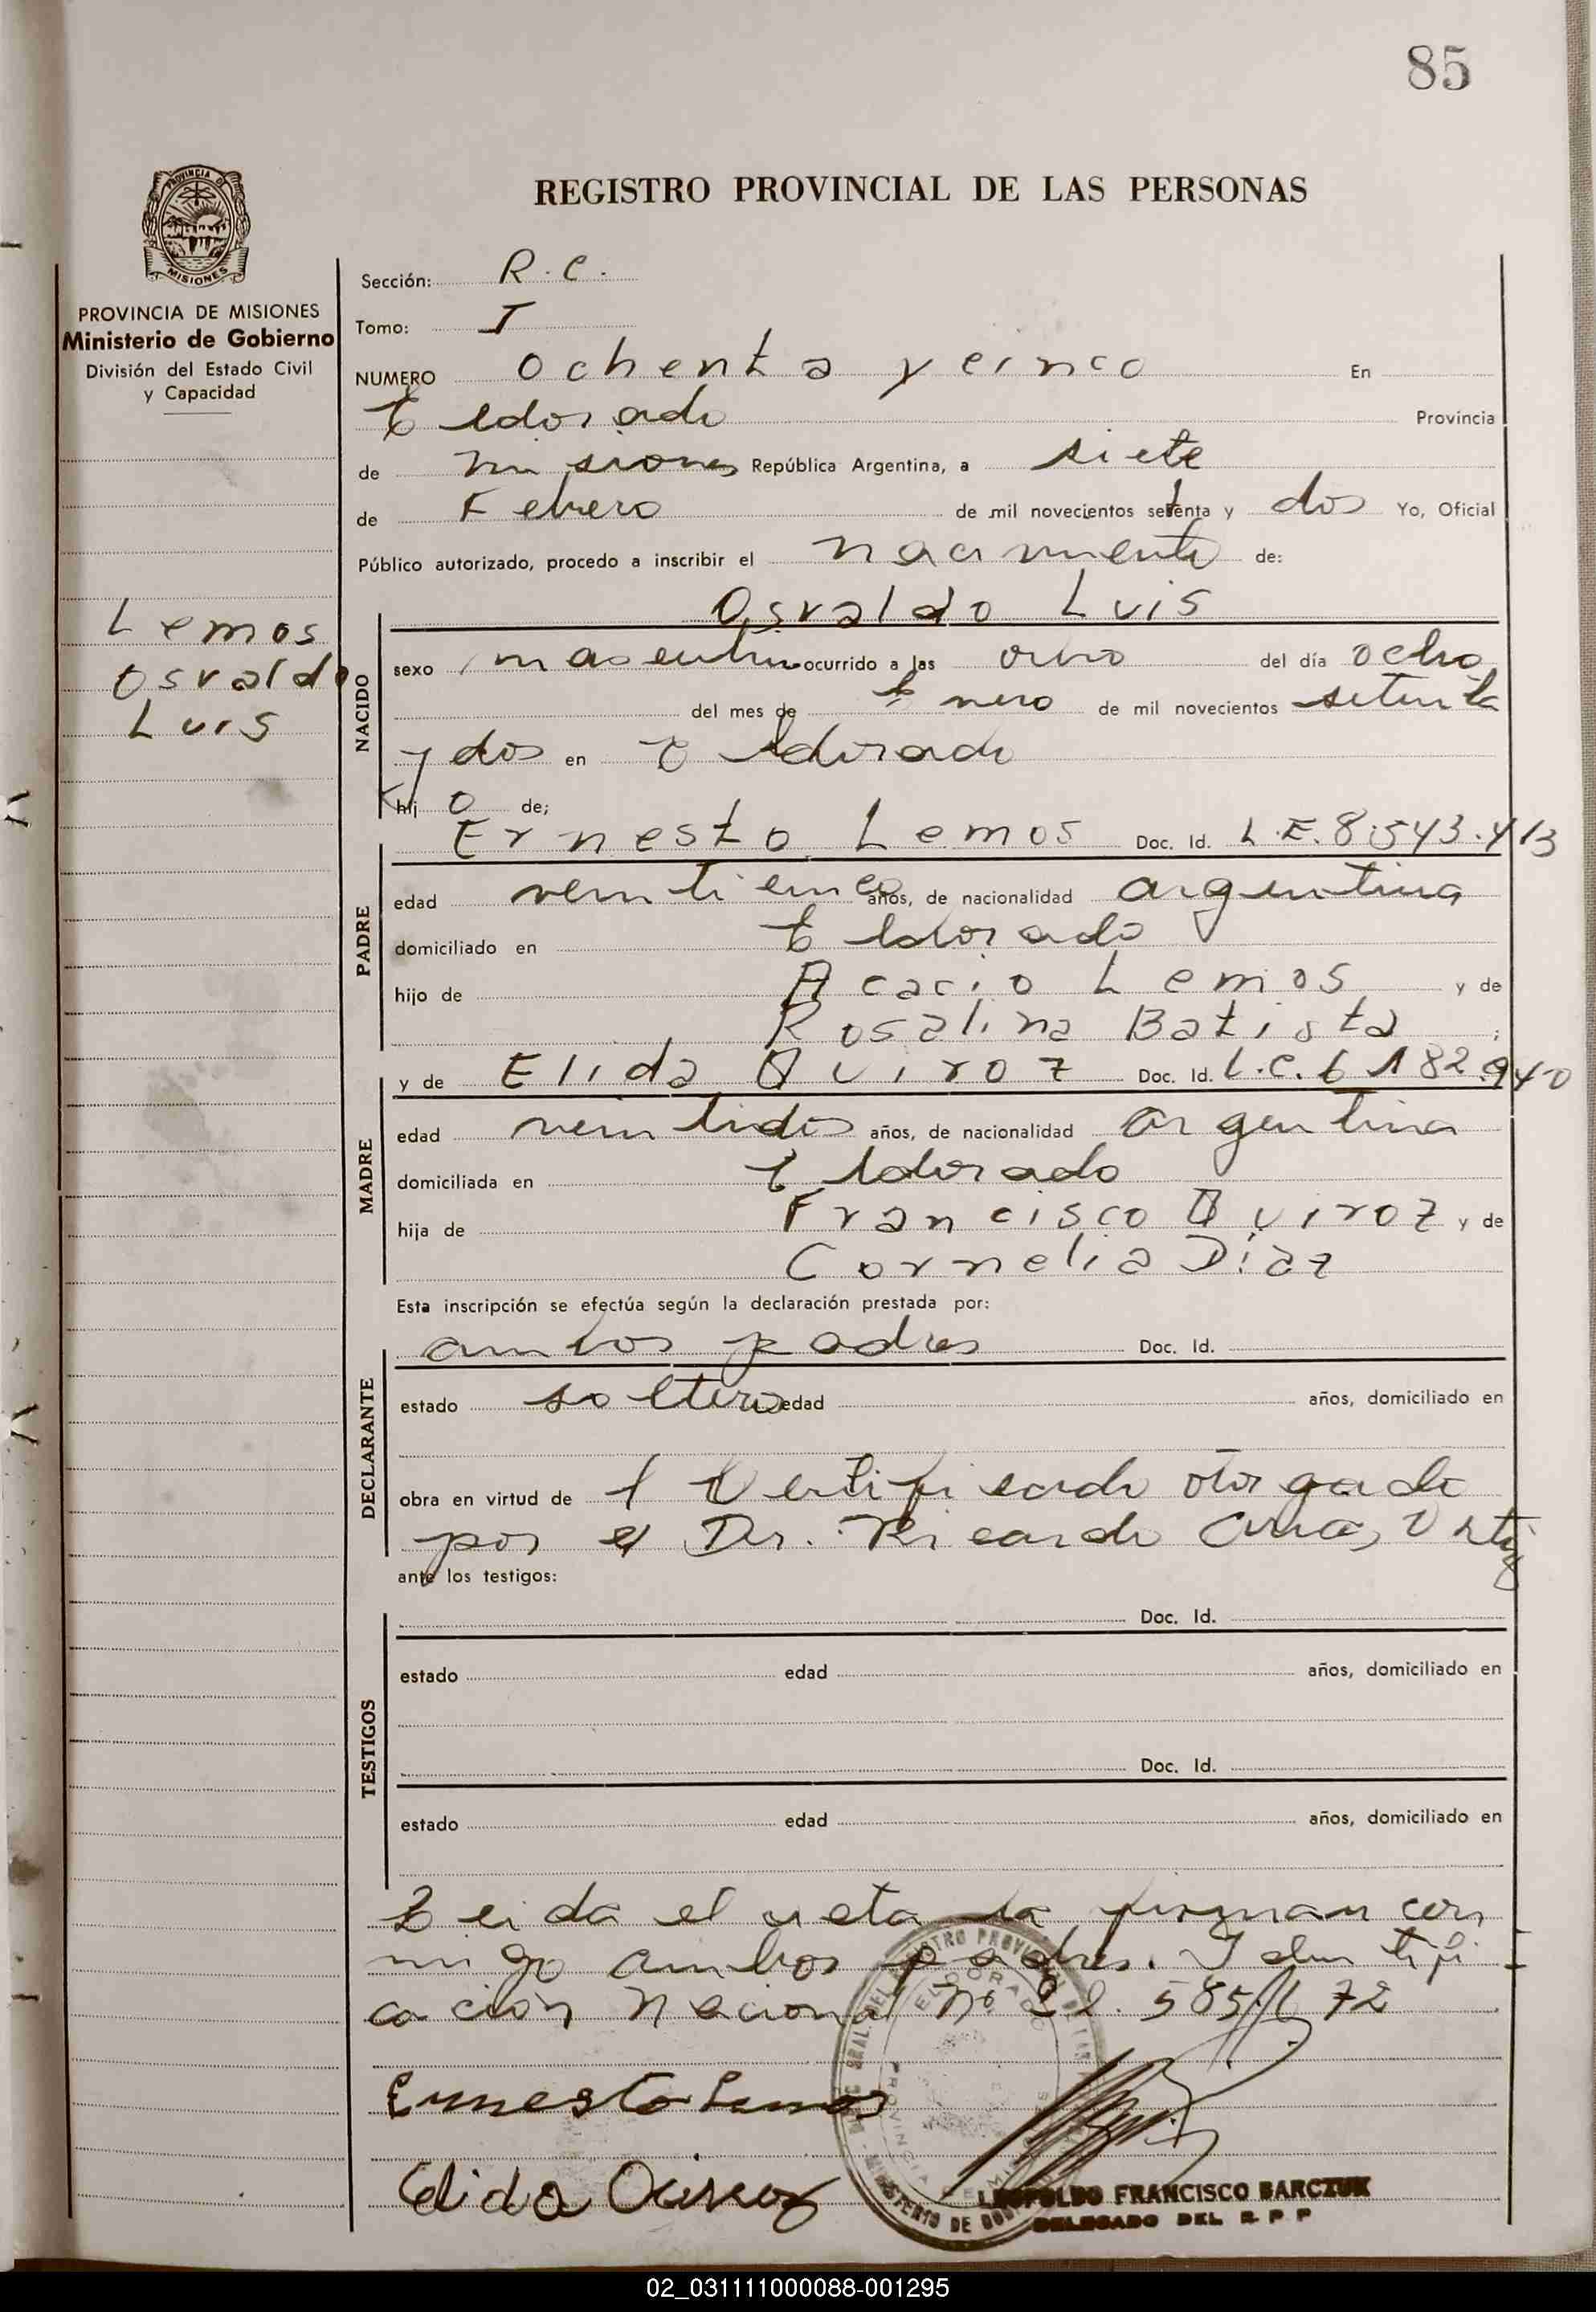 85
REGISTRO PROVINCIAL DE LAS PERSONAS
PROVINCIA DE MISIONES
Ministerio de Gobierno
División del Estado Civil
y Capacidad
Lemos
Osvaldo
Luis
Sección: R.C.
Tomo: I
NUMERO ochenta y cinco En
Eldorado Provincia
de misiones República Argentina, a siete
de Febrero de mil novecientos setenta y dos Yo, Oficial
Público autorizado, procedo a inscribir el nacimiento de:
Osvaldo Luis
NACIDO
sexo masculino ocurrido a las del día ocho
del mes de Enero de mil novecientos setenta
y dos en Eldorado
hijo de;
Ernesto Lemos Doc. Id. L.E. 8.543.413
PADRE
edad veinticinco años, de nacionalidad argentina
domiciliado en Eldorado
hijo de Acacio Lemos y de
Rosalina Batista ;
y de Elida Quiroz Doc. Id. L.C. 6182.940
MADRE
edad veintidos años, de nacionalidad argentina
domiciliada en Eldorado
hija de Francisco Quiroz y de
Cornelia Diaz
Esta inscripción se efectúa según la declaración prestada por:
ambos padres Doc. Id.
DECLARANTE
estado soltero edad años, domiciliado en
obra en virtud de 1 Certificado otorgado
por el Dr. Ricardo
ante los testigos:
TESTIGOS
Doc. Id.
estado edad años, domiciliado en
Doc. Id.
estado edad años, domiciliado en
Leida el acta la firman con
migo ambos padres. Identifi
cación Nacional Nº 22.585/// 72
Ernesto Lemos
Elida Quiroz
LEOPOLDO FRANCISCO BARCZUK
DELEGADO DEL R. P. P
02_031111000088-001295